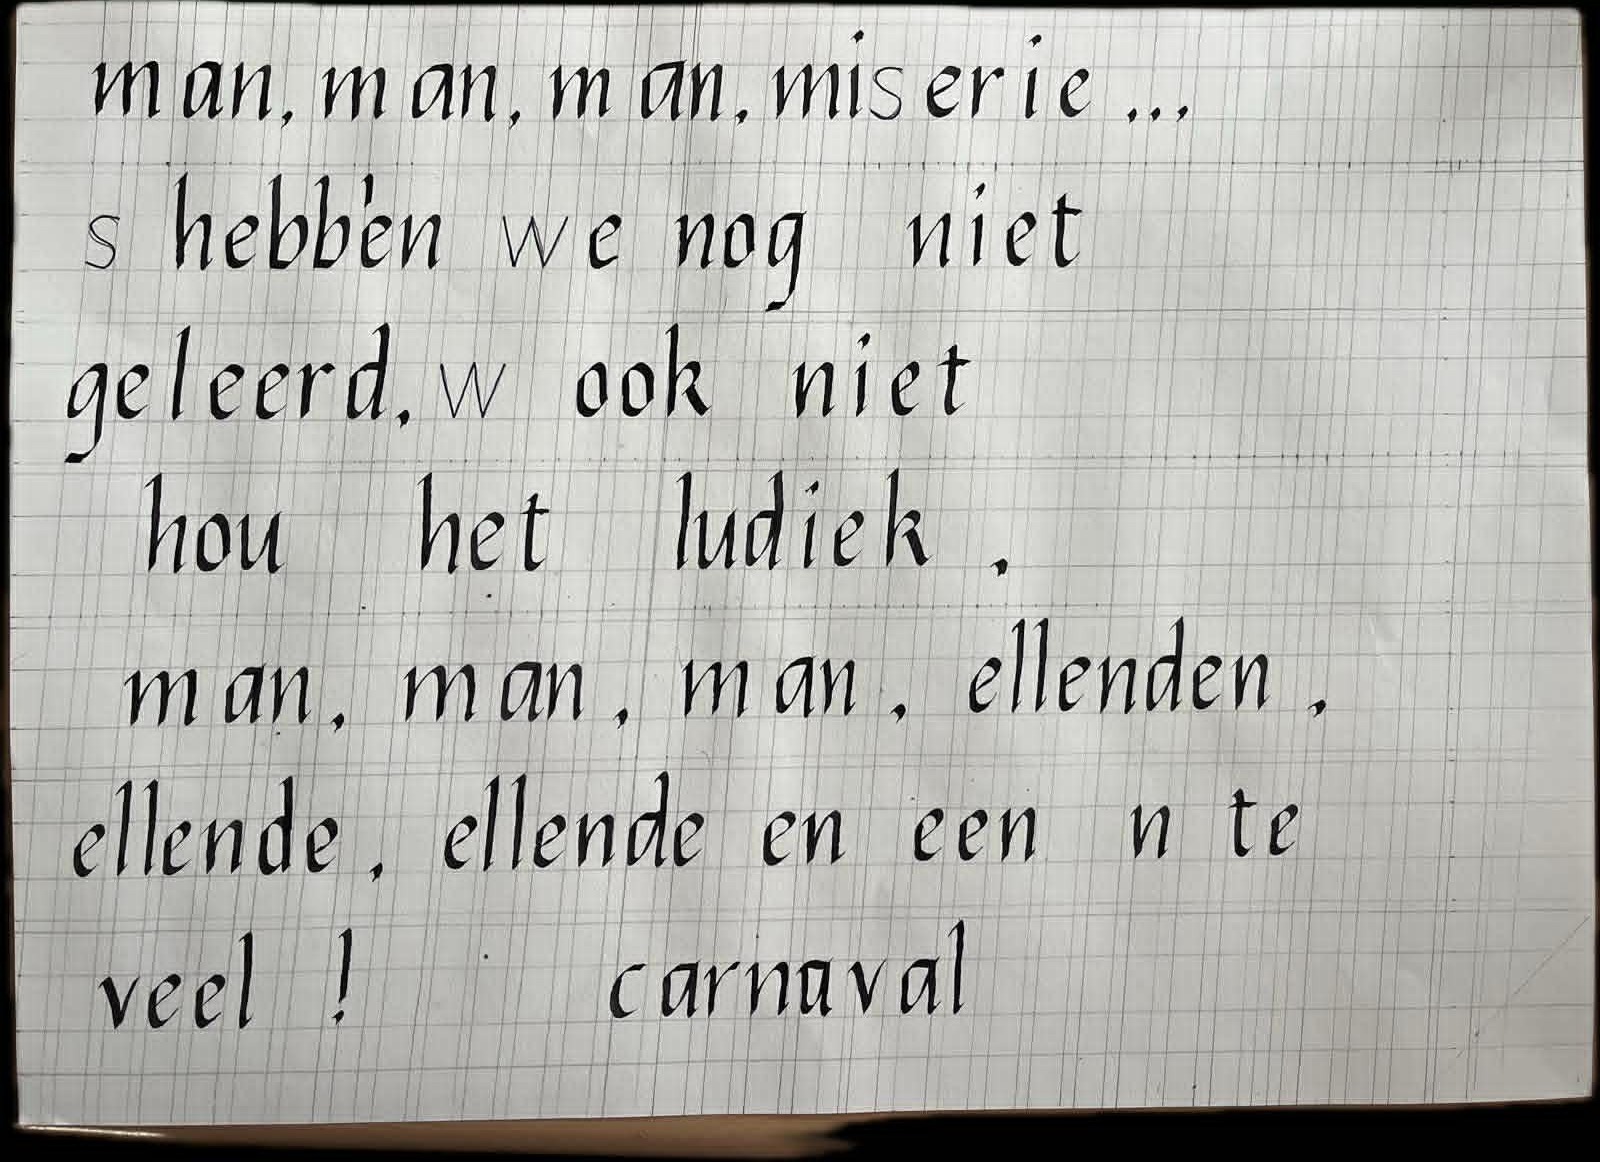 man, man, man, miserie...
s hebben we nog niet
geleerd, w ook niet
hou het ludiek.
man, man, man, ellenden,
ellende, ellende en een n te
veel! carnaval